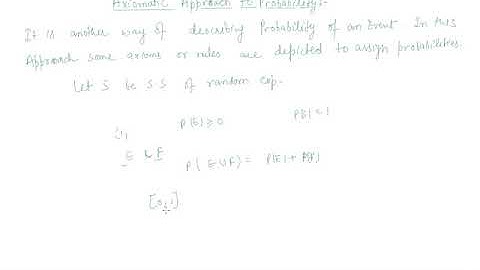 Axiomatic Approach to Probability:-
It is another way of describing Probability of an Event In this
Approach some axioms or rules are depicted to assign probabilities.
Let S be S.S of random exp.
P(E) ≥ 0 P(S) = 1
E & F P( E ∪ F) = P(E) + P(F)
[0,1]